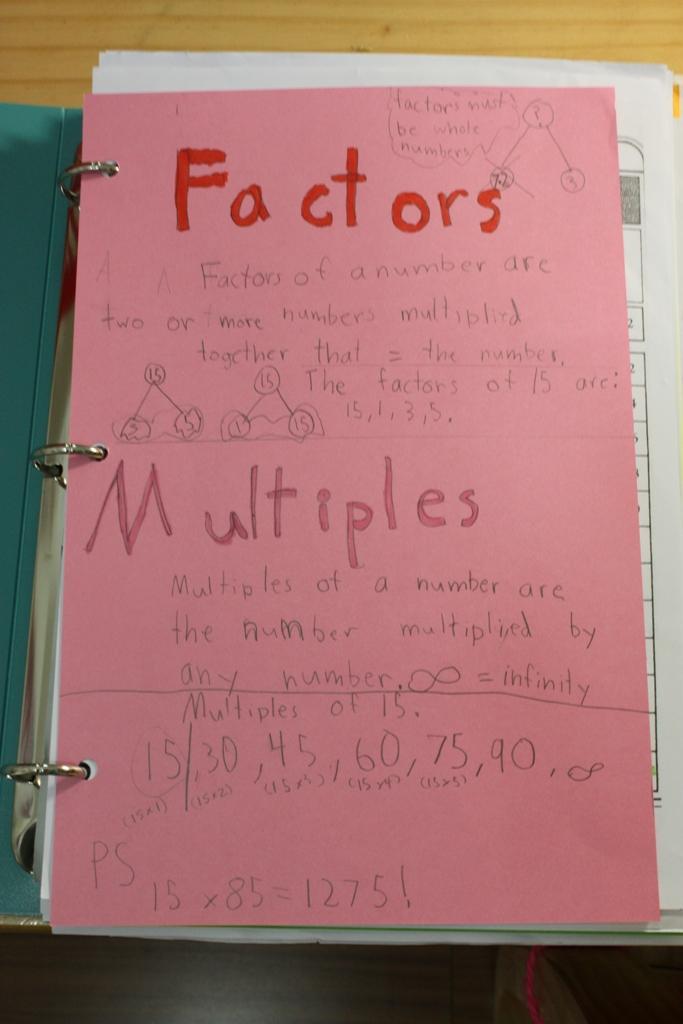 factors must
be whole
numbers
?
7.2
3
Factors
Factors of a number are
two or more numbers multiplied
together that = the number.
15
15
The factors of 15 are:
15, 1, 3, 5.
3
5
1
15
Multiples
Multiples of a number are
the number multiplied by
any number. ∞ = infinity
Multiples of 15.
15, 30, 45, 60, 75, 90, ∞
(15x1) (15x2) (15x3) (15x4) (15x5)
PS
15 x 85 = 1275!